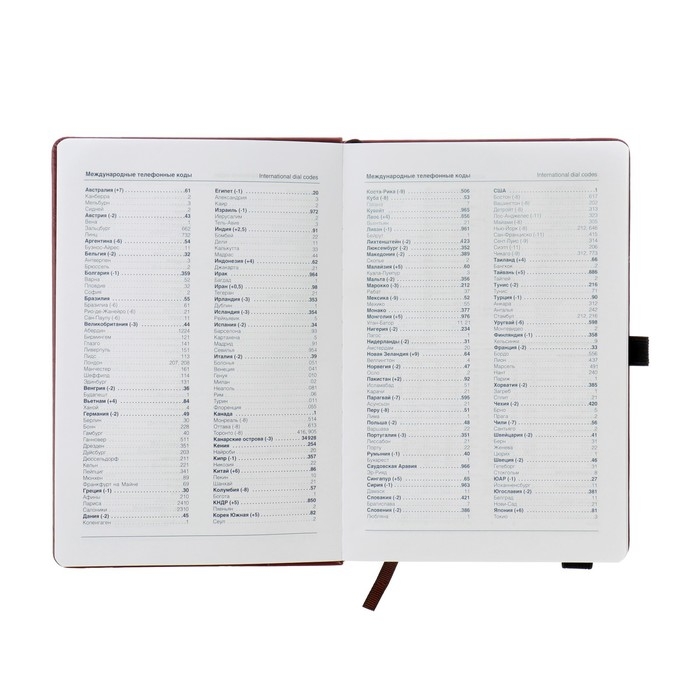 Международные телефонные коды International dial codes
Австралия (+7) .61
Канберра 2
Мельбурн 3
Сидней 2
Австрия (-2) .43
Вена 1
Зальцбург 662
Линц 732
Аргентина (-6) .54
Буэнос-Айрес 11
Бельгия (-2) .32
Антверпен 3
Брюссель 2
Болгария (-1) .359
Варна 52
Пловдив 32
София 2
Бразилия .55
Бразилиа (-6) 61
Рио-де-Жанейро (-6) 21
Сан-Паулу (-6) 11
Великобритания (-3) .44
Абердин 1224
Бирмингем 121
Глазго 141
Ливерпуль 151
Лидс 113
Лондон 207, 208
Манчестер 161
Шеффилд 114
Эдинбург 131
Венгрия (-2) .36
Будапешт 1
Вьетнам (+4) .84
Ханой 4
Германия (-2) .49
Берлин 30
Бонн 228
Гамбург 40
Ганновер 511
Дрезден 351
Дуйсбург 203
Дюссельдорф 211
Кельн 221
Лейпциг 341
Мюнхен 89
Франкфурт на Майне 69
Греция (-1) .30
Афины 210
Лариса 2410
Салоники 2310
Дания (-2) .45
Копенгаген 1
Египет (-1) .20
Александрия 3
Каир 2
Израиль (-1) .972
Иерусалим 2
Тель-Авив 3
Индия (+2,5) .91
Бомбей 22
Дели 11
Калькутта 33
Мадрас 44
Индонезия (+4) .62
Джакарта 21
Ирак .964
Багдад 1
Иран (+0,5) .98
Тегеран 21
Ирландия (-3) .353
Дублин 1
Исландия (-3) .354
Рейкьявик 5
Испания (-2) .34
Барселона 93
Картахена 5
Мадрид 91
Севилья 954
Италия (-2) .39
Болонья 051
Венеция 041
Генуя 010
Милан 02
Неаполь 081
Рим 06
Турин 011
Флоренция 055
Канада .1
Монреаль (-8) 514
Оттава (-8) 613
Торонто (-8) 416, 905
Канарские острова (-3) .34928
Кения .254
Найроби 20
Кипр (-1) .357
Никозия 22
Китай (+6) .86
Пекин 10
Шанхай 21
Колумбия (-8) .57
Богота 1
КНДР (+5) .850
Пхеньян 2
Корея Южная (+5) .82
Сеул 2
Международные телефонные коды International dial codes
Коста Рика (-9) .506
Куба (-8) .53
Гавана 7
Кувейт .965
Лаос (+5) .856
Вьентьян 21
Ливан (-1) .961
Бейрут 1
Лихтенштейн (-2) .423
Люксембург (-2) .352
Македония (-2) .389
Скопье 2
Малайзия (+5) .60
Куала-Лумпур 3
Мальта (-2) .356
Марокко (-3) .212
Рабат 37
Мексика (-9) .52
Мехико 55
Монако .377
Монголия (+5) .976
Улан-Батор 11, 21
Нигерия (-2) .234
Лагос 1
Нидерланды (-2) .31
Амстердам 20
Новая Зеландия (+9) .64
Веллингтон 4
Норвегия (-2) .47
Осло 2
Пакистан (+2) .92
Исламабад 51
Карачи 21
Парагвай (-7) .595
Асунсьон 21
Перу (-8) .51
Лима 1
Польша (-2) .48
Варшава 22
Португалия (-3) .351
Лиссабон 21
Порту 22
Румыния (-1) .40
Бухарест 21
Саудовская Аравия .966
Эр-Рияд 1
Сингапур (+5) .65
Сирия (-1) .963
Дамаск 11
Словакия (-2) .421
Братислава 2
Словения (-2) .386
Любляна 1
США .1
Бостон (-8) 617
Вашингтон (-8) 202
Детройт (-8) 313
Лос-Анджелес (-11) 213
Майами (-8) 305
Нью-Йорк (-8) 212, 646
Сан-Франциско (-11) 415
Сент-Луис (-9) 314
Сиэтл (-11) 206
Чикаго (-9) 312, 773
Таиланд (+4) .66
Бангкок 2
Тайвань (+5) .886
Тайбей 2
Тунис (-2) .216
Тунис 71
Турция (-1) .90
Анкара 312
Анталья 242
Стамбул 212, 216
Уругвай (-6) .598
Монтевидео 2
Финляндия (-1) .358
Хельсинки 9
Франция (-2) .33
Бордо 556
Лион 4
Марсель 491
Ницца 4
Париж 1
Хорватия (-2) .385
Загреб 1
Сплит 21
Чехия (-2) .420
Брно 5
Прага 2
Чили (-7) .56
Сантьяго 2
Швейцария (-2) .41
Берн 31
Женева 22
Цюрих 1
Швеция (-2) .46
Гетеборг 31
Стокгольм 8
ЮАР (-1) .27
Йоханнесбург 11
Югославия (-2) .381
Белград 11
Нови-Сад 21
Япония (+6) .81
Токио 3